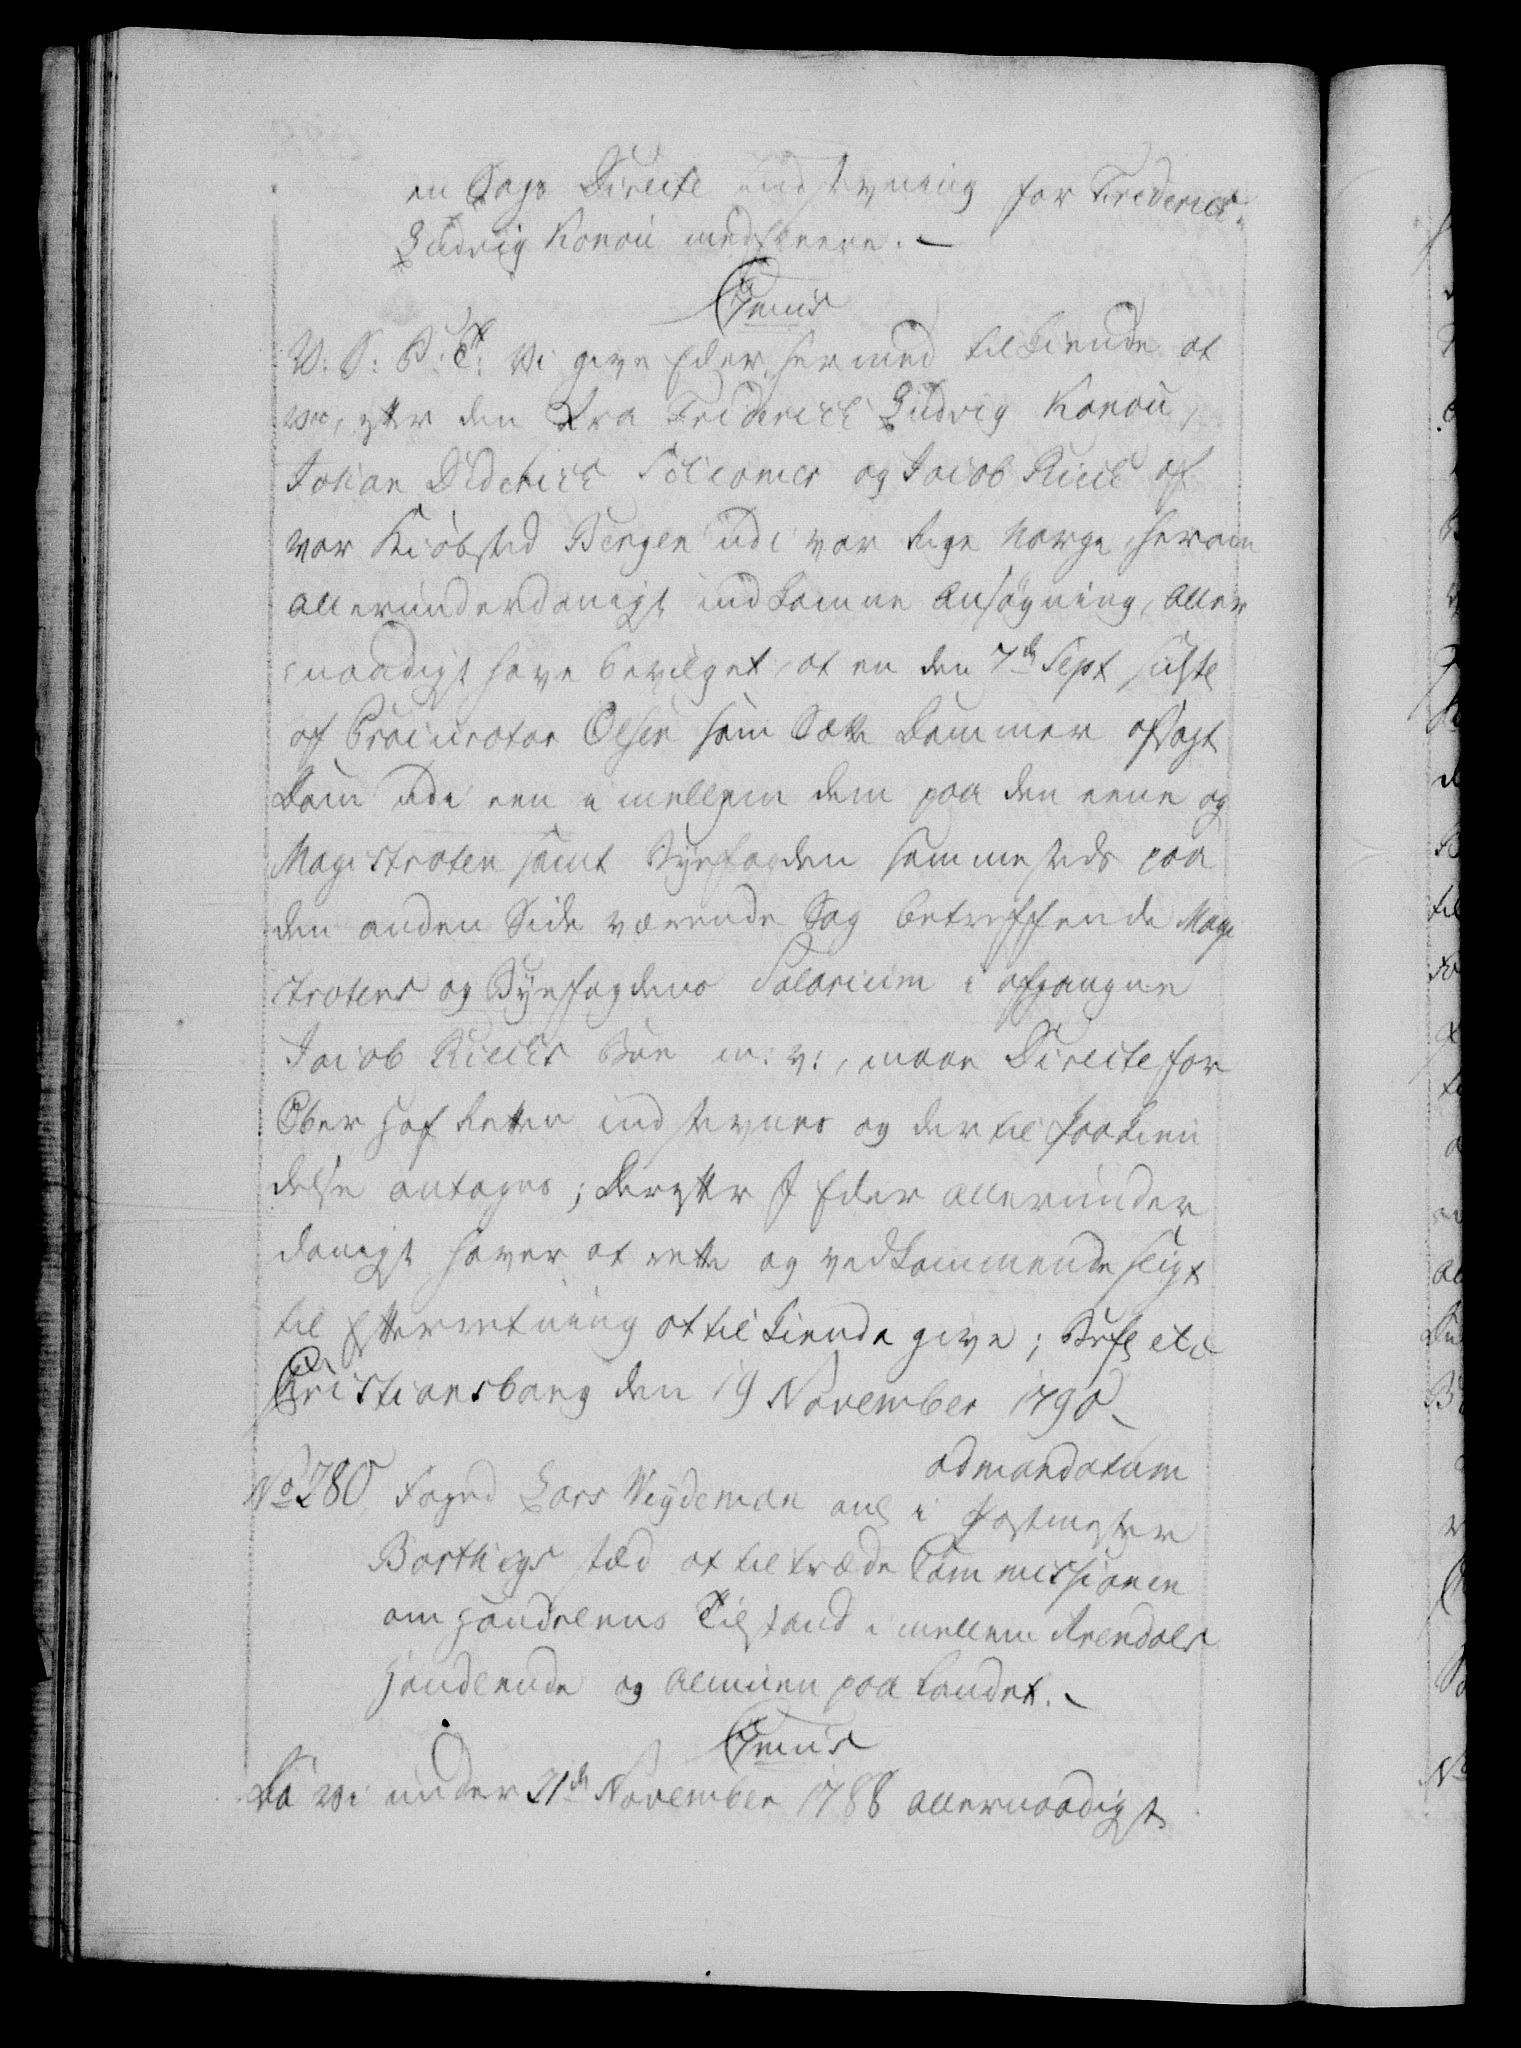 en Sags Directe indstevning for Frederich
Ludvig Konou med fleere. —
Gienis
V: S: G: T: Vi give Eder hermed tilkiende at
vi, efter den fra Friderich Ludvig Konou,
Johan Diderich og Jacob Kieck af
vor Kiøbsted Bergen udi vor Rige Norge, herom
allerunderdanigst indkomne Ansøgning, aller
naadigst have bevilget, at en den 7de Sept sidste
af Procurator Olsen som Sætte Dommer afsagt
Dom udi een imellem dem paa den eene og
Magistraten samt Byefogden sammesteds paa
den anden Side værende Sag betreffende Magi
stratens og Byefogdens Salarium i afgangne
Jacob Kiecks Boe m: v:, maae Directe for
Ober Hof Retten indstevnes og der til Paakien
delse antages; Derefter I Eder allerunder
danigst haver at rette og vedkommende sligt
til Efterretning at tilkiende give; Befl etc
Christiansborg den 19 November 1790.
ad mandatum
No 280 Foged Lars Weydeman anl i Postmester
Borthigs sted at tiltræde Commissionen
om Handelens Tilstand imellem Arendals
Handlende og Almuen paa Landet. —
Gienis
Da Vi under 21de November 1788 allernaadigst